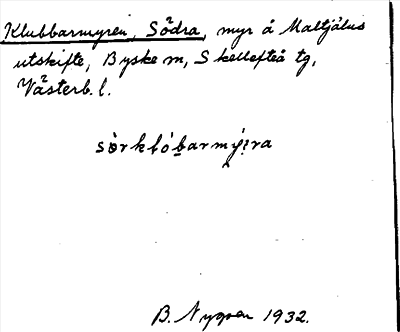 Klubbarmyren, Södra, myr å Maltjälus
utskifte, Byske m, Skellefteå tg,
Västerb. l.
sòrklóbarmýra
B. Nygren 1932.